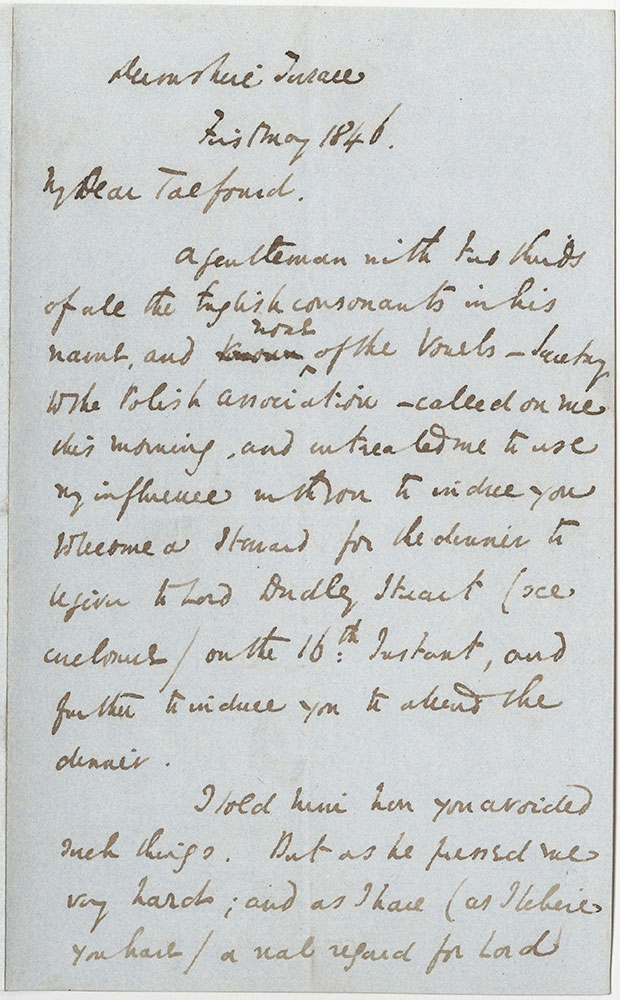 Devonshire Terrace
First May 1846.
My Dear Talfourd.
A gentleman with two thirds
of all the English consonants in his
name, and none of the Vowels – Secretary
to the Polish Association – called on me
this morning, and intreated me to use
my influence with you to induce you
to become a Steward for the dinner to
be given to Lord Dudley Stuart (see
enclosure) on the 16th. Instant, and
further to induce you to attend the
dinner.
I told him how you avoided
such things. But as he pressed me
very hard; and as I have (as I believe
you have) a real regard for Lord